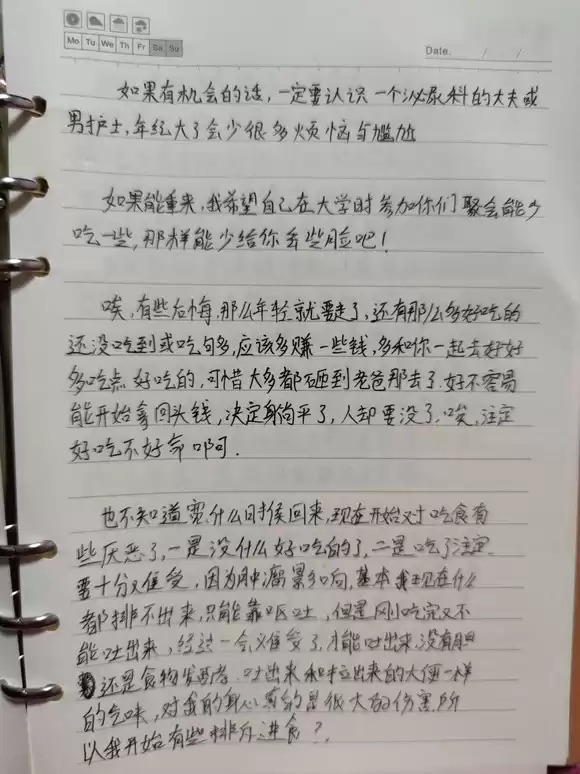 Mo Tu We Th Fr Sa Su
Date. / /
如果有机会的话，一定要认识一个泌尿科的大夫或
男护士，年纪大了会少很多烦恼与尴尬
如果能重来，我希望自己在大学时参加你们聚会能少
吃一些，那样能少给你丢些脸吧！
唉，有些后悔，那么年轻就要走了，还有那么多好吃的
还没吃到或吃句多，应该多赚一些钱，多和你一起去好好
多吃点好吃的，可惜大多都砸到老爸那去了。好不容易
能开始拿回头钱，决定身尚平了，人却要没了。唉，注定
好吃不好命啊可.
也不知道 什么时候回来，现在开始对吃食有
些厌恶了，一是没什么好吃的了，二是吃了注定
要十分难受，因为肿瘤影响，基本我现在什么
都排不出来，只能靠呕吐，但是刚吃完又不
能吐出来，经过一会难受了，才能吐出来，没有胆
还是食物发酵 吐出来和拉出来的大便一样
的气味，对我的身心真的是很大的伤害，所
以我开始有些排斥进食？.